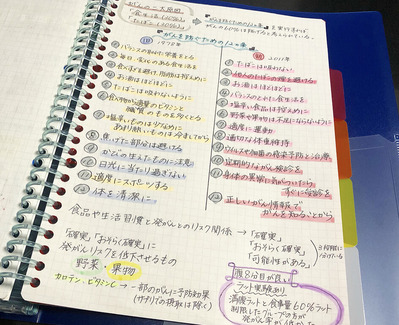 がんの二大原因
「食生活(30%)」
「たばこ(30%)」
がんを防ぐための12か条
旧 1978年
バランスのとれた栄養をとる
毎日、変化のある食生活を
食べすぎを避け、脂肪は控えめに
お酒はほどほどに
たばこは吸わないように
食べ物から適量のビタミンと
繊維質のものを多くとる
塩辛いものは少なめに
あまり熱いものは冷ましてから
焦げた部分は避ける
かびの生えたものに注意
日光に当たり過ぎない
適度にスポーツする
体を清潔に
新 2011年
たばこは吸わない
他人のたばこの煙を避ける
お酒はほどほどに
バランスのとれた食生活を
塩辛い食品は控えめに
野菜や果物は不足にならないように
適度に運動
適切な体重維持
ウイルスや細菌の感染予防と治療
定期的ながん検診を
身体の異常に気がついたら
すぐに受診を
正しいがん情報で
がんを知ることから
食品や生活習慣と発がんとのリスク関係 → 「確実」
「おそらく確実」
「可能性がある」
3段階に
「確実」「おそらく確実」に
発がんリスクを低下させるもの
野菜・果物
カロテン・ビタミンC → 一部のがんに予防効果
(サプリでの摂取は除く)
腹8分目が良い
ラット実験あり
満腹ラットと食事量60%ラット
制限したグループの方が
発がん率が低かった